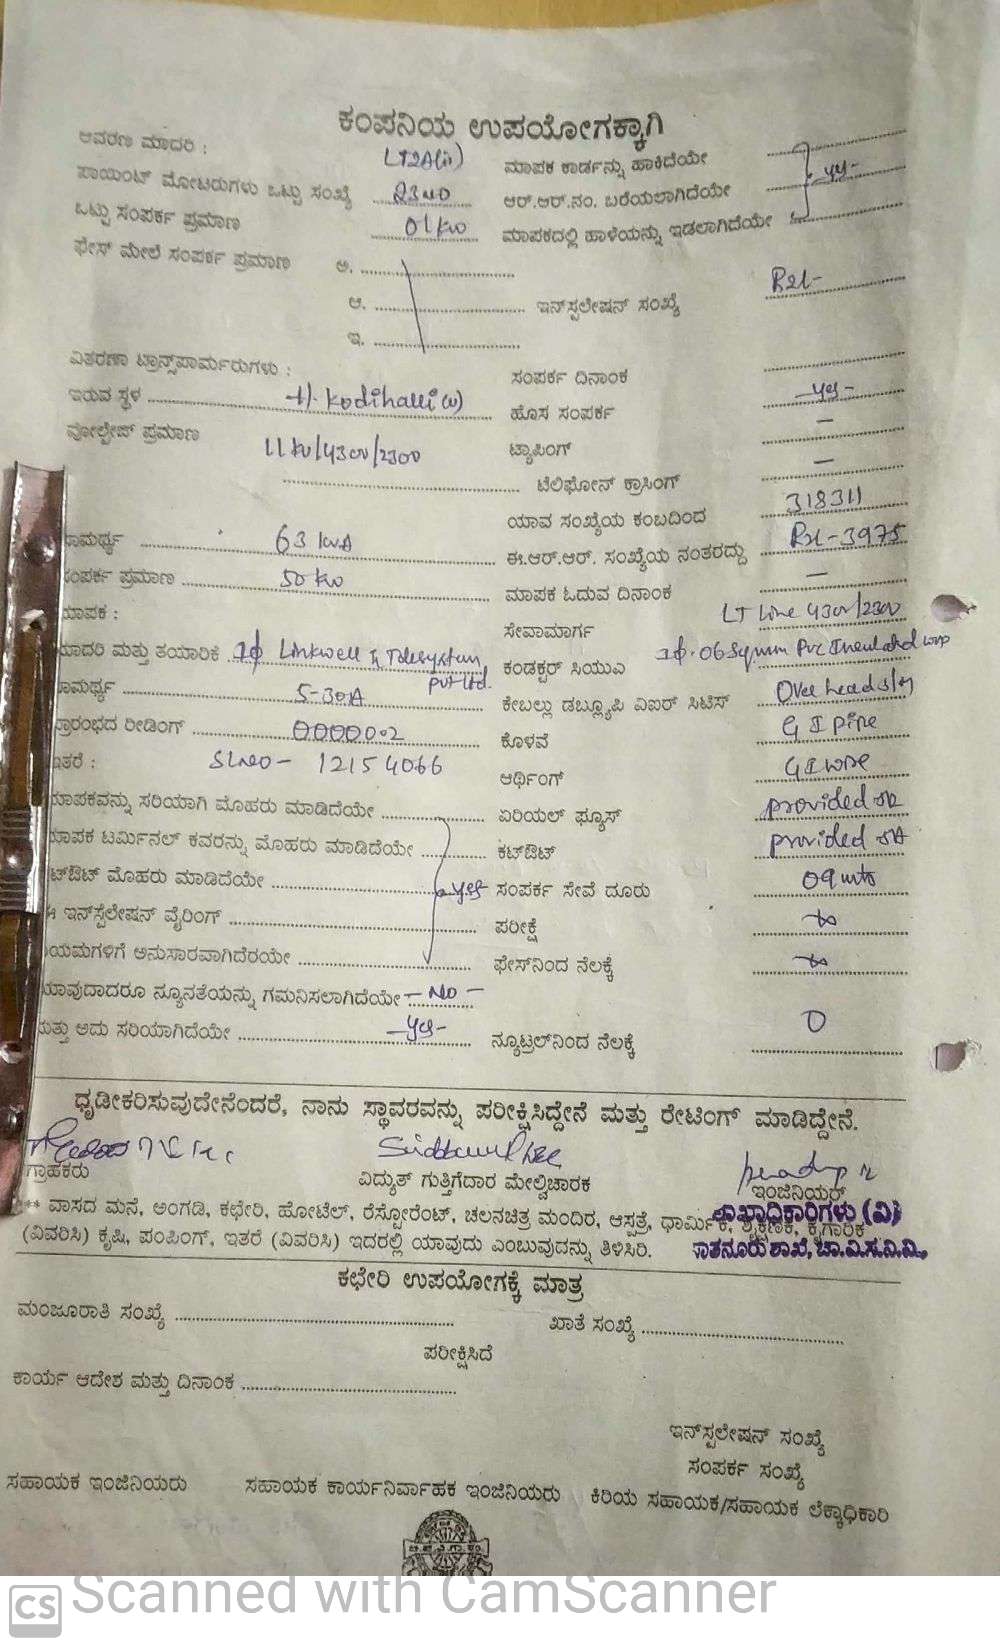 ಕಂಪನಿಯ ಉಪಯೋಗಕ್ಕಾಗಿ
ಆವರಣ ಮಾದರಿ : LT2A(ii) ಮಾಪಕ ಕಾರ್ಡನ್ನು ಹಾಕಿದೆಯೇ
ಪಾಯಿಂಟ್ ಮೋಟರುಗಳು ಒಟ್ಟು ಸಂಖ್ಯೆ ಆರ್.ಆರ್.ನಂ. ಬರೆಯಲಾಗಿದೆಯೇ
ಒಟ್ಟು ಸಂಪರ್ಕ ಪ್ರಮಾಣ 01 kw ಮಾಪಕದಲ್ಲಿ ಹಾಳೆಯನ್ನು ಇಡಲಾಗಿದೆಯೇ
ಫೇಸ್ ಮೇಲೆ ಸಂಪರ್ಕ ಪ್ರಮಾಣ ಅ.
ಆ. ಇನ್‌ಸ್ಪಲೇಷನ್ ಸಂಖ್ಯೆ
ಇ.
ವಿತರಣಾ ಟ್ರಾನ್ಸ್‌ಪಾರ್ಮರುಗಳು : ಸಂಪರ್ಕ ದಿನಾಂಕ
ಇರುವ ಸ್ಥಳ H. Kodihalli (v) ಹೊಸ ಸಂಪರ್ಕ - yes -
ವೋಲ್ಟೇಜ್ ಪ್ರಮಾಣ 11 kv/430v/230v ಟ್ಯಾಪಿಂಗ್ —
ಟೆಲಿಫೋನ್ ಕ್ರಾಸಿಂಗ್ —
ಯಾವ ಸಂಖ್ಯೆಯ ಕಂಬದಿಂದ 318311
ಸಾಮರ್ಥ್ಯ 63 kvA ಈ.ಆರ್.ಆರ್. ಸಂಖ್ಯೆಯ ನಂತರದ್ದು
ಸಂಪರ್ಕ ಪ್ರಮಾಣ 50 kw ಮಾಪಕ ಓದುವ ದಿನಾಂಕ —
ಮಾಪಕ : ಸೇವಾಮಾರ್ಗ LT Line 430v/230v
ಮಾದರಿ ಮತ್ತು ತಯಾರಿಕೆ 1ϕ Linkwell Telesystem Pvt Ltd. ಕಂಡಕ್ಟರ್ ಸಿಯುಎ 1ϕ. 06 Sqmm Pvc Insulated
ಸಾಮರ್ಥ್ಯ 5-30A ಕೇಬಲ್ಲು ಡಬ್ಲ್ಯೂಪಿ ವಿಐರ್ ಸಿಟಿಸ್ Over head
ಪ್ರಾರಂಭದ ರೀಡಿಂಗ್ 000000.2 ಕೊಳವೆ G I pipe
ಇತರೆ : Slno - 12154066 ಆರ್ಥಿಂಗ್ G I wire
ಮಾಪಕವನ್ನು ಸರಿಯಾಗಿ ಮೊಹರು ಮಾಡಿದೆಯೇ ಏರಿಯಲ್ ಫ್ಯೂಸ್ provided
ಮಾಪಕ ಟರ್ಮಿನಲ್ ಕವರನ್ನು ಮೊಹರು ಮಾಡಿದೆಯೇ ಕಟ್‌ಔಟ್ provided 5A
ಟ್‌ಔಟ್ ಮೊಹರು ಮಾಡಿದೆಯೇ yes ಸಂಪರ್ಕ ಸೇವೆ ದೂರು 09 mts
ಈ ಇನ್‌ಸ್ಪೆಲೇಷನ್ ವೈರಿಂಗ್ ಪರೀಕ್ಷೆ ∞
ಯಮಗಳಿಗೆ ಅನುಸಾರವಾಗಿದೆರಯೇ ಫೇಸ್‌ನಿಂದ ನೆಲಕ್ಕೆ ∞
ಯಾವುದಾದರೂ ನ್ಯೂನತೆಯನ್ನು ಗಮನಿಸಲಾಗಿದೆಯೇ - No -
ಮತ್ತು ಅದು ಸರಿಯಾಗಿದೆಯೇ - yes - ನ್ಯೂಟ್ರಲ್‌ನಿಂದ ನೆಲಕ್ಕೆ 0
ಧೃಡೀಕರಿಸುವುದೇನೆಂದರೆ, ನಾನು ಸ್ಥಾವರವನ್ನು ಪರೀಕ್ಷಿಸಿದ್ದೇನೆ ಮತ್ತು ರೇಟಿಂಗ್ ಮಾಡಿದ್ದೇನೆ.
ಗ್ರಾಹಕರು ವಿದ್ಯುತ್ ಗುತ್ತಿಗೆದಾರ ಮೇಲ್ವಿಚಾರಕ ಇಂಜಿನಿಯರ್
ಶಾಖಾಧಿಕಾರಿಗಳು (ವಿ)
** ವಾಸದ ಮನೆ, ಅಂಗಡಿ, ಕಛೇರಿ, ಹೋಟೆಲ್, ರೆಸ್ಟೋರೆಂಟ್, ಚಲನಚಿತ್ರ ಮಂದಿರ, ಆಸ್ಪತ್ರೆ, ಧಾರ್ಮಿಕ, ಶೈಕ್ಷಣಿಕ, ಕೈಗಾರಿಕೆ
(ವಿವರಿಸಿ) ಕೃಷಿ, ಪಂಪಿಂಗ್, ಇತರೆ (ವಿವರಿಸಿ) ಇದರಲ್ಲಿ ಯಾವುದು ಎಂಬುವುದನ್ನು ತಿಳಿಸಿರಿ.
ಸಾತನೂರು ಶಾಖೆ, ಚಾ.ವಿ.ಸ.ನಿ.ನಿ.,
ಕಛೇರಿ ಉಪಯೋಗಕ್ಕೆ ಮಾತ್ರ
ಮಂಜೂರಾತಿ ಸಂಖ್ಯೆ ಖಾತೆ ಸಂಖ್ಯೆ
ಪರೀಕ್ಷಿಸಿದೆ
ಕಾರ್ಯ ಆದೇಶ ಮತ್ತು ದಿನಾಂಕ
ಇನ್‌ಸ್ಪಲೇಷನ್ ಸಂಖ್ಯೆ
ಸಂಪರ್ಕ ಸಂಖ್ಯೆ
ಸಹಾಯಕ ಇಂಜಿನಿಯರು ಸಹಾಯಕ ಕಾರ್ಯನಿರ್ವಾಹಕ ಇಂಜಿನಿಯರು ಕಿರಿಯ ಸಹಾಯಕ/ಸಹಾಯಕ ಲೆಕ್ಕಾಧಿಕಾರಿ
CS Scanned with CamScanner